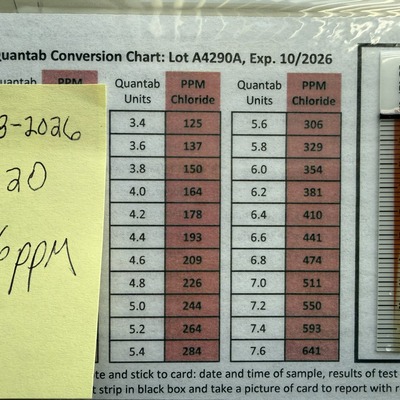 Quantab Conversion Chart: Lot A4290A, Exp. 10/2026
Quantab PPM Quantab PPM Quantab PPM
Units Chloride Units Chloride
3.4 125 5.6 306
3.6 137 5.8 329
3.8 150 6.0 354
4.0 164 6.2 381
4.2 178 6.4 410
4.4 193 6.6 441
4.6 209 6.8 474
4.8 226 7.0 511
5.0 244 7.2 550
5.2 264 7.4 593
5.4 284 7.6 641
-2026
20
PPM
te and stick to card: date and time of sample, results of test
strip in black box and take a picture of card to report with r